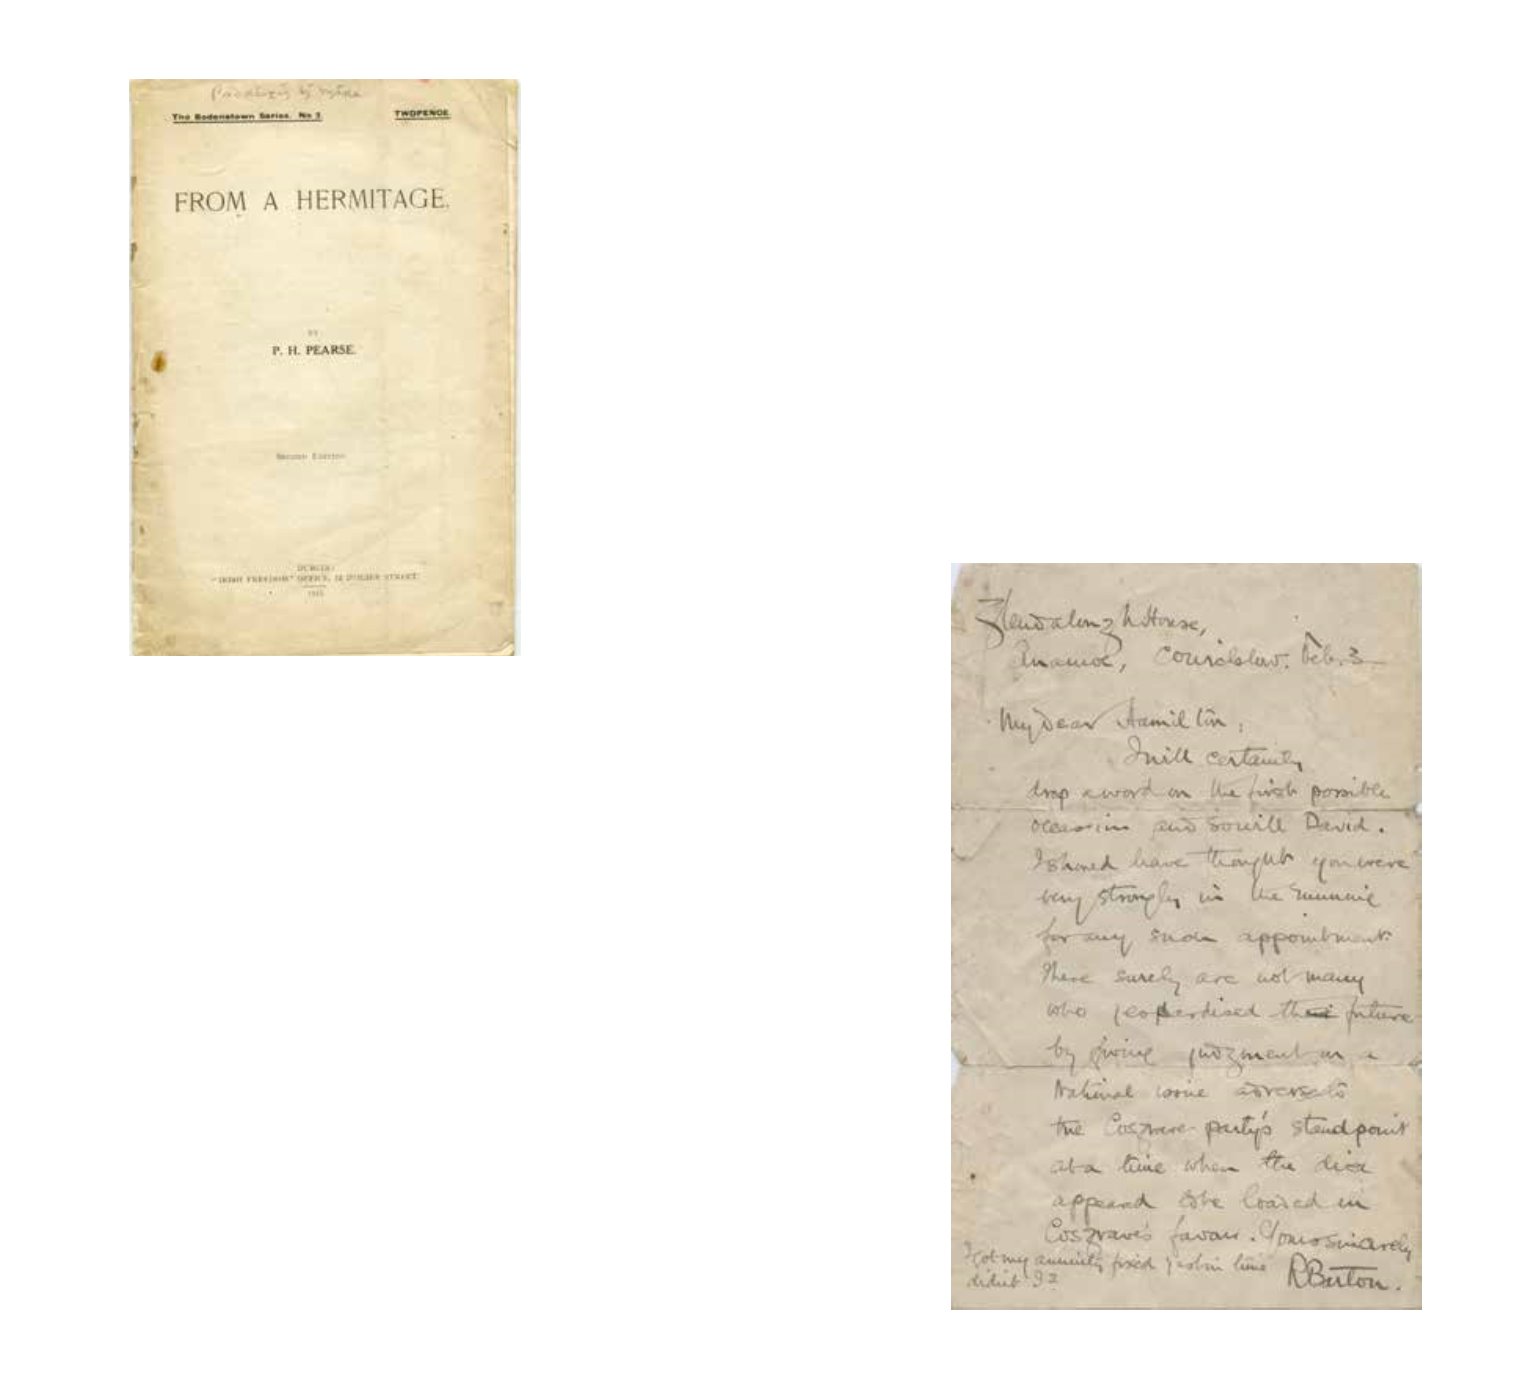 The Bodenstown Series. No 2.
TWOPENCE.
FROM A HERMITAGE.
BY
P. H. PEARSE.
Second Edition
DUBLIN:
"IRISH FREEDOM" OFFICE, 12 D'OLIER STREET.
1915
Glendalough House,
Anamoe, Feb. 3
My Dear Hamilton,
I will certainly
drop a word on the first possible
occasion and so will David.
I should have thought you were
very strongly in the running
for any such appointment.
There surely are not many
who jeopardised their future
by giving judgment on a
National issue adverse to
the Cosgrave party's standpoint
at a time when the dice
appeared to be loaded in
Cosgrave's favour. Yours sincerely
RBarton.
I got my annuity fixed just in time
didn't I?